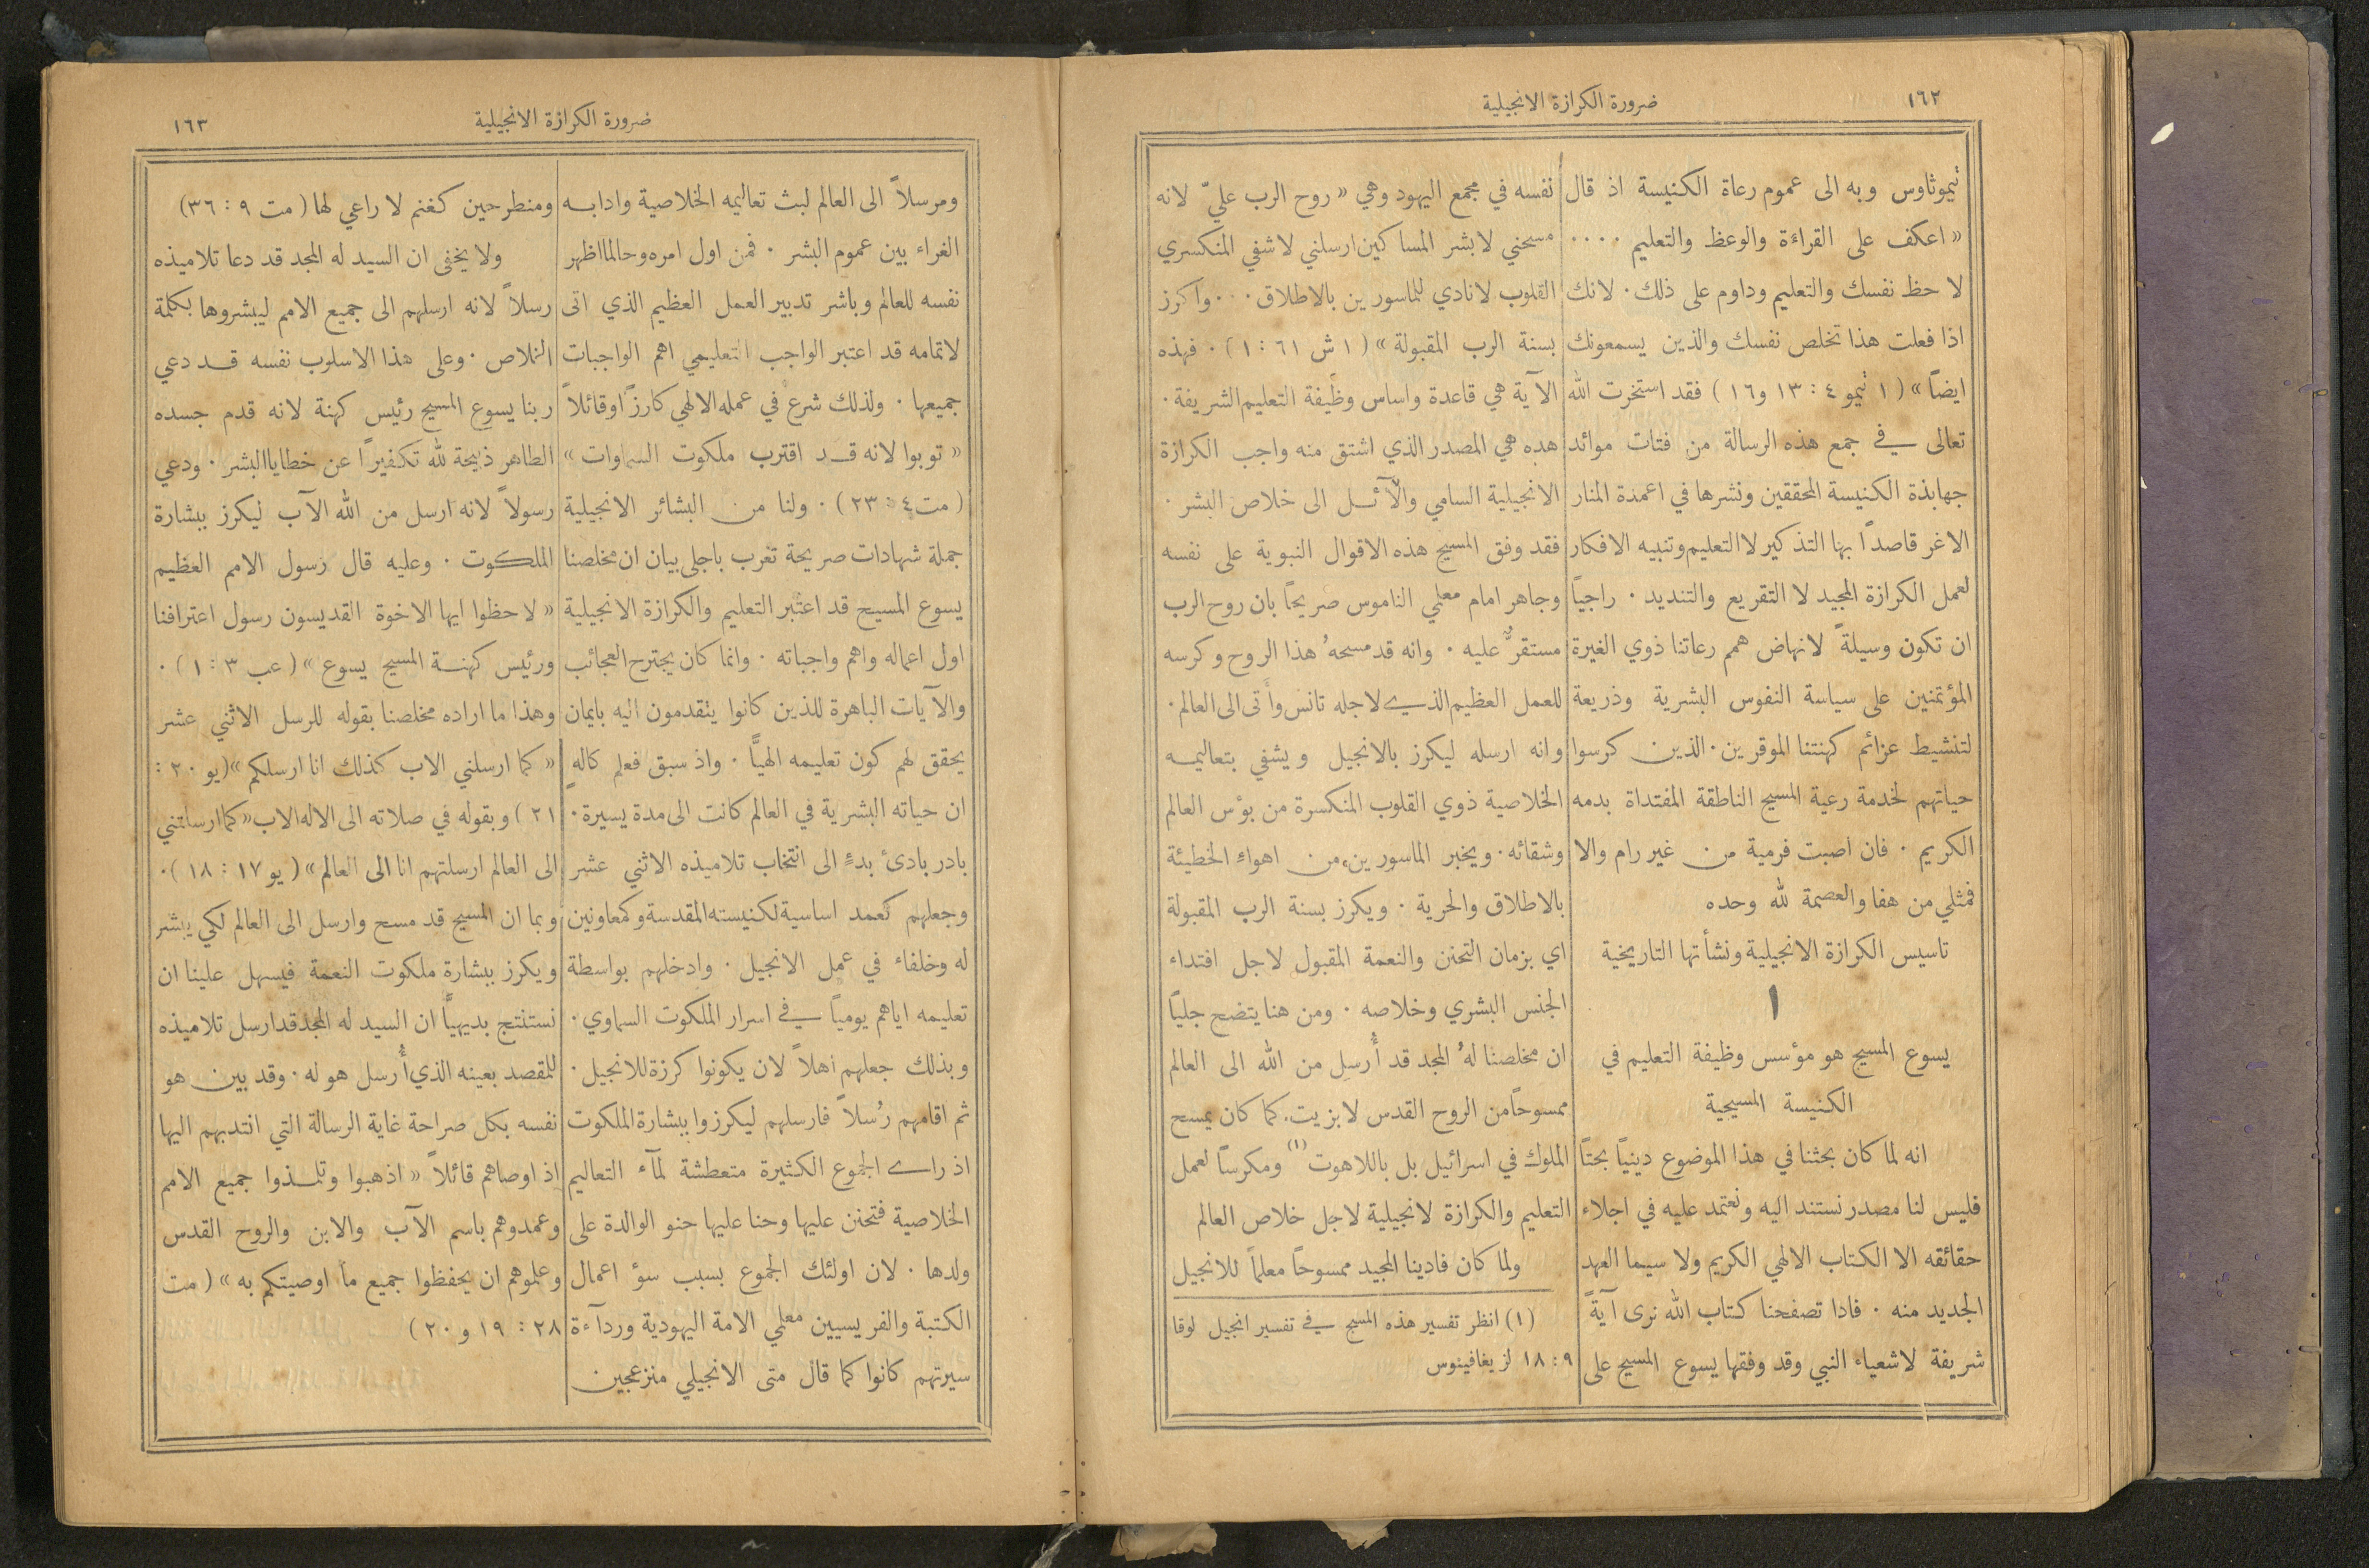 ١٦٢
ضرورة الكرازة الانجيلية
تيموثاوس وبه الى عموم رعاة الكنيسة اذ قال
« اعكف على القراءة والوعظ والتعليم ....
لا حظ نفسك والتعليم وداوم على ذلك . لانك
اذا فعلت هذا تخلص نفسك والذين يسمعونك
ايضاً » ( ١ تيمو ٤ : ١٣ و ١٦ ) فقد استخرت الله
تعالى في جمع هذه الرسالة من فتات موائد
جهابذة الكنيسة المحققين ونشرها في اعمدة المنار
الاغر قاصداً بها التذكير لا التعليم وتنبيه الافكار
لعمل الكرازة المجيد لا التقريع والتنديد . راجياً
ان تكون وسيلةً لانهاض همم رعاتنا ذوي الغيرة
المؤتمنين على سياسة النفوس البشرية وذريعة
لتنشيط عزائم كهنتنا الموقرين . الذين كرسوا
حياتهم لخدمة رعية المسيح الناطقة المفتداة بدمه
الكريم . فان اصبت فرمية من غير رام والا
فمثلي من هفا والعصمة لله وحده
تاسيس الكرازة الانجيلية ونشأتها التاريخية
١
يسوع المسيح هو مؤسس وظيفة التعليم في
الكنيسة المسيحية
انه لما كان بحثنا في هذا الموضوع دينياً بحتاً
فليس لنا مصدر نستند اليه ونعتمد عليه في اجلاء
حقائقه الا الكتاب الالهي الكريم ولا سيما العهد
الجديد منه . فاذا تصفحنا كتاب الله نرى آيةً
شريفة لاشعياء النبي وقد وفقها يسوع المسيح على
نفسه في مجمع اليهود وهي « روح الرب عليّ لانه
مسحني لابشر المساكين ارسلني لاشفي المنكسري
القلوب لانادي للماسورين بالاطلاق ... واكرز
بسنة الرب المقبولة » ( ١ ش ٦١ : ١ ) . فهذه
الآية هي قاعدة واساس وظيفة التعليم الشريفة .
هده هي المصدر الذي اشتق منه واجب الكرازة
الانجيلية السامي والآئل الى خلاص البشر .
فقد وفق المسيح هذه الاقوال النبوية على نفسه
وجاهر امام معلمي الناموس صريحاً بان روح الرب
مستقرٌّ عليه . وانه قد مسحهُ هذا الروح وكرسه
للعمل العظيم الذي لاجله تانس وأتى الى العالم .
وانه ارسله ليكرز بالانجيل ويشفي بتعاليمه
الخلاصية ذوي القلوب المنكسرة من بؤس العالم
وشقائه . ويخبر الماسورين من اهواءِ الخطيئة
بالاطلاق والحرية . ويكرز بسنة الرب المقبولة
اي بزمان التحنن والنعمة المقبول لاجل افتداء
الجنس البشري وخلاصه . ومن هنا يتضح جلياً
ان مخلصنا لهُ المجد قد أُرسل من الله الى العالم
ممسوحاً من الروح القدس لا بزيت . كما كان يمسح
الملوك في اسرائيل بل باللاهوت (١) ومكرساً لعمل
التعليم والكرازة لانجيلية لاجل خلاص العالم
ولما كان فادينا المجيد ممسوحاً معلماً للانجيل
(١) انظر تفسير هذه المسح في تفسير انجيل لوقا
٩ : ١٨ لزيغافينوس
ضرورة الكرازة الانجيلية
١٦٣
ومرسلاً الى العالم لبث تعاليمه الخلاصية وادابه
الغراء بين عموم البشر . فمن اول امره وحالما اظهر
نفسه للعالم وباشر تدبير العمل العظيم الذي اتى
لاتمامه قد اعتبر الواجب التعليمي اهم الواجبات
جميعها . ولذلك شرع في عمله الالهي كارزاً وقائلاً
« توبوا لانه قد اقترب ملكوت السماوات »
( مت ٤ : ٢٣ ) . ولنا من البشائر الانجيلية
جملة شهادات صريحة تعرب باجلى بيان ان مخلصنا
يسوع المسيح قد اعتبر التعليم والكرازة الانجيلية
اول اعماله واهم واجباته . وانما كان يجترح العجائب
والآيات الباهرة للذين كانوا يتقدمون اليه بايمان
يحقق لهم كون تعليمه الهياً . واذ سبق فعلم كالهٍ
ان حياته البشرية في العالم كانت الى مدة يسيرة .
بادر بادئ بدءٍ الى انتخاب تلاميذه الاثني عشر
وجعلهم كعمد اساسية لكنيسته المقدسة وكمعاونين
له وخلفاء في عمل الانجيل . وادخلهم بواسطة
تعليمه اياهم يومياً في اسرار الملكوت السماوي .
وبذلك جعلهم اهلاً لان يكونوا كرزة للانجيل .
ثم اقامهم رُسلاً فارسلهم ليكرزوا ببشارة الملكوت
اذ راى الجموع الكثيرة متعطشة لمآء التعاليم
الخلاصية فتحنن عليها وحنا عليها حنو الوالدة على
ولدها . لان اولئك الجموع بسبب سوٴ اعمال
الكتبة والفريسيين معلمي الامة اليهودية وردآءة
سيرتهم كانوا كما قال متى الانجيلي منزعجين
ومنطرحين كغنم لا راعي لها ( مت ٩ : ٣٦ )
ولا يخفى ان السيد له المجد قد دعا تلاميذه
رسلاً لانه ارسلهم الى جميع الامم ليبشروها بكلمة
الخلاص . وعلى هذا الاسلوب نفسه قد دعي
ربنا يسوع المسيح رئيس كهنة لانه قدم جسده
الطاهر ذبيحة لله تكفيراً عن خطايا البشر . ودعي
رسولاً لانه ارسل من الله الآب ليكرز ببشارة
الملكوت . وعليه قال رسول الامم العظيم
« لاحظوا ايها الاخوة القديسون رسول اعترافنا
ورئيس كهنة المسيح يسوع » ( عب ٣ : ١ ) .
وهذا ما اراده مخلصنا بقوله للرسل الاثني عشر
« كما ارسلني الاب كذلك انا ارسلكم » ( يو ٢٠ :
٢١ ) وبقوله في صلاته الى الاله الاب « كما ارسلتني
الى العالم ارسلتهم انا الى العالم » ( يو ١٧ : ١٨ ) .
وبما ان المسيح قد مسح وارسل الى العالم لكي يبشر
ويكرز ببشارة ملكوت النعمة فيسهل علينا ان
نستنتج بديهياً ان السيد له المجد قد ارسل تلاميذه
للمقصد بعينه الذي أُرسل هو له . وقد بين هو
نفسه بكل صراحة غاية الرسالة التي انتدبهم اليها
اذ اوصاهم قائلاً « اذهبوا وتلمذوا جميع الامم
وعمدوهم باسم الآب والابن والروح القدس
وعلموهم ان يحفظوا جميع ما اوصيتكم به » ( مت
٢٨ : ١٩ و ٢٠ )